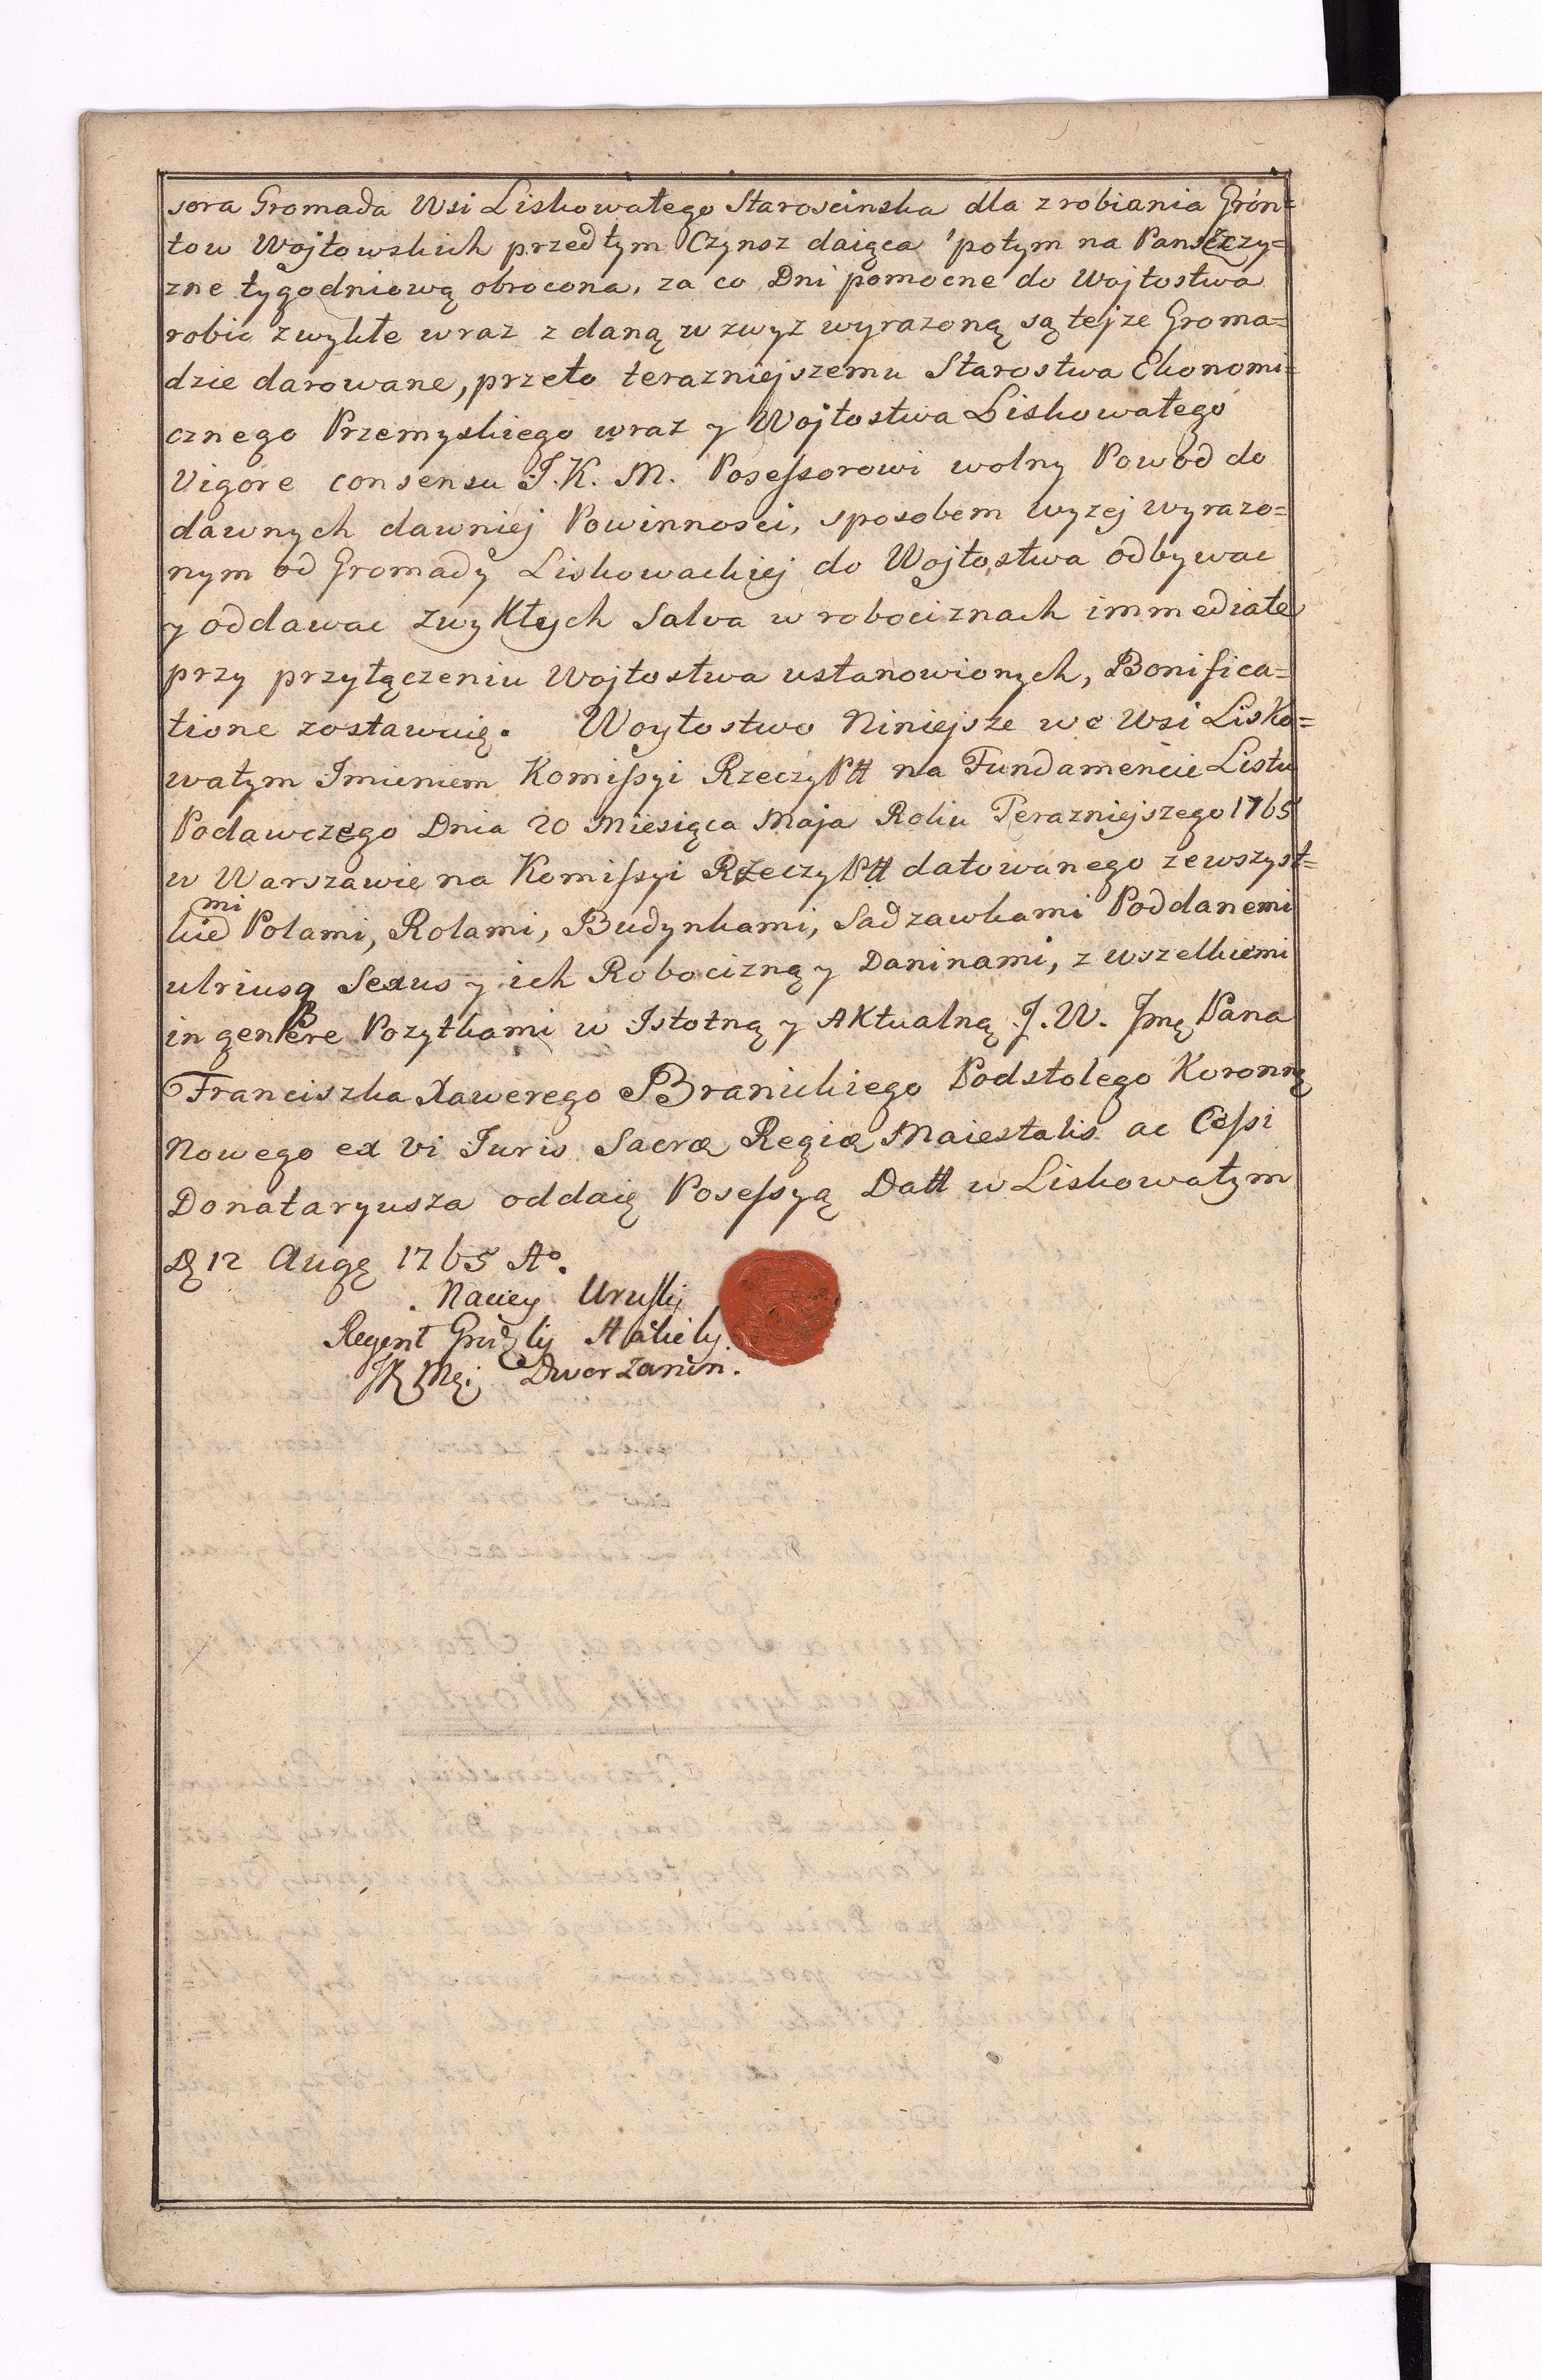 sora Gromada Wsi Liskowatego Staroscinska dla zrobiania Grón=
tow Wojtowskich przedtym Czynsz daiąca potym na Pansczzy=
zne tygodniową obrocona, za co Dni pomocne do Wojtostwa
robic zwykłe wraz z daną wzwyz wyrazoną są tejze Groma=
dzie darowane, przeto terazniejszemu Starostwa Ekonomi=
cznego Przemyskiego wraz y Wojtostwa Liskowatego
Vigore consensu J. K. M. Posessorowi wolny Powod do
dawnych dawniej Powinnosci, sposobem wyzej wyrazo=
nym od Gromady Liskowackiej do Wojtostwa odbywac
y oddawac zwykłych Salva w robociznach immediate
przy przyłączeniu Wojtostwa ustanowionych, Bonifica=
tione zostawuię. Woytostwo Niniejsze we Wsi Lisko=
watym Imieniem Komissyi Rzeczyptt na Fundamencie Listu
Podawczego Dnia 20 Miesiąca Maja Roku Terazniejszego 1765
w Warszawie na Komissyi Rzeczyptt datowanego zewszyst=
kiemi Polami, Rolami, Budynkami, Sadzawkami Poddanemi
utriusq Sexus y ich Robocizną y Daninami, z wszelkiemi
in genere Pozytkami w Istotną y Aktualną J. W. Jmę Pana
Franciszka Xawerego Branickiego Podstolego Koronnę
Nowego ex vi Juris Sacræ Regiæ Maiestatis ac Cessi
Donataryusza oddaię Posessyą Datt w Liskowatym
D 12 Augę 1765 A°.
Regent Grodzkij
JK Mci Dworzanin.